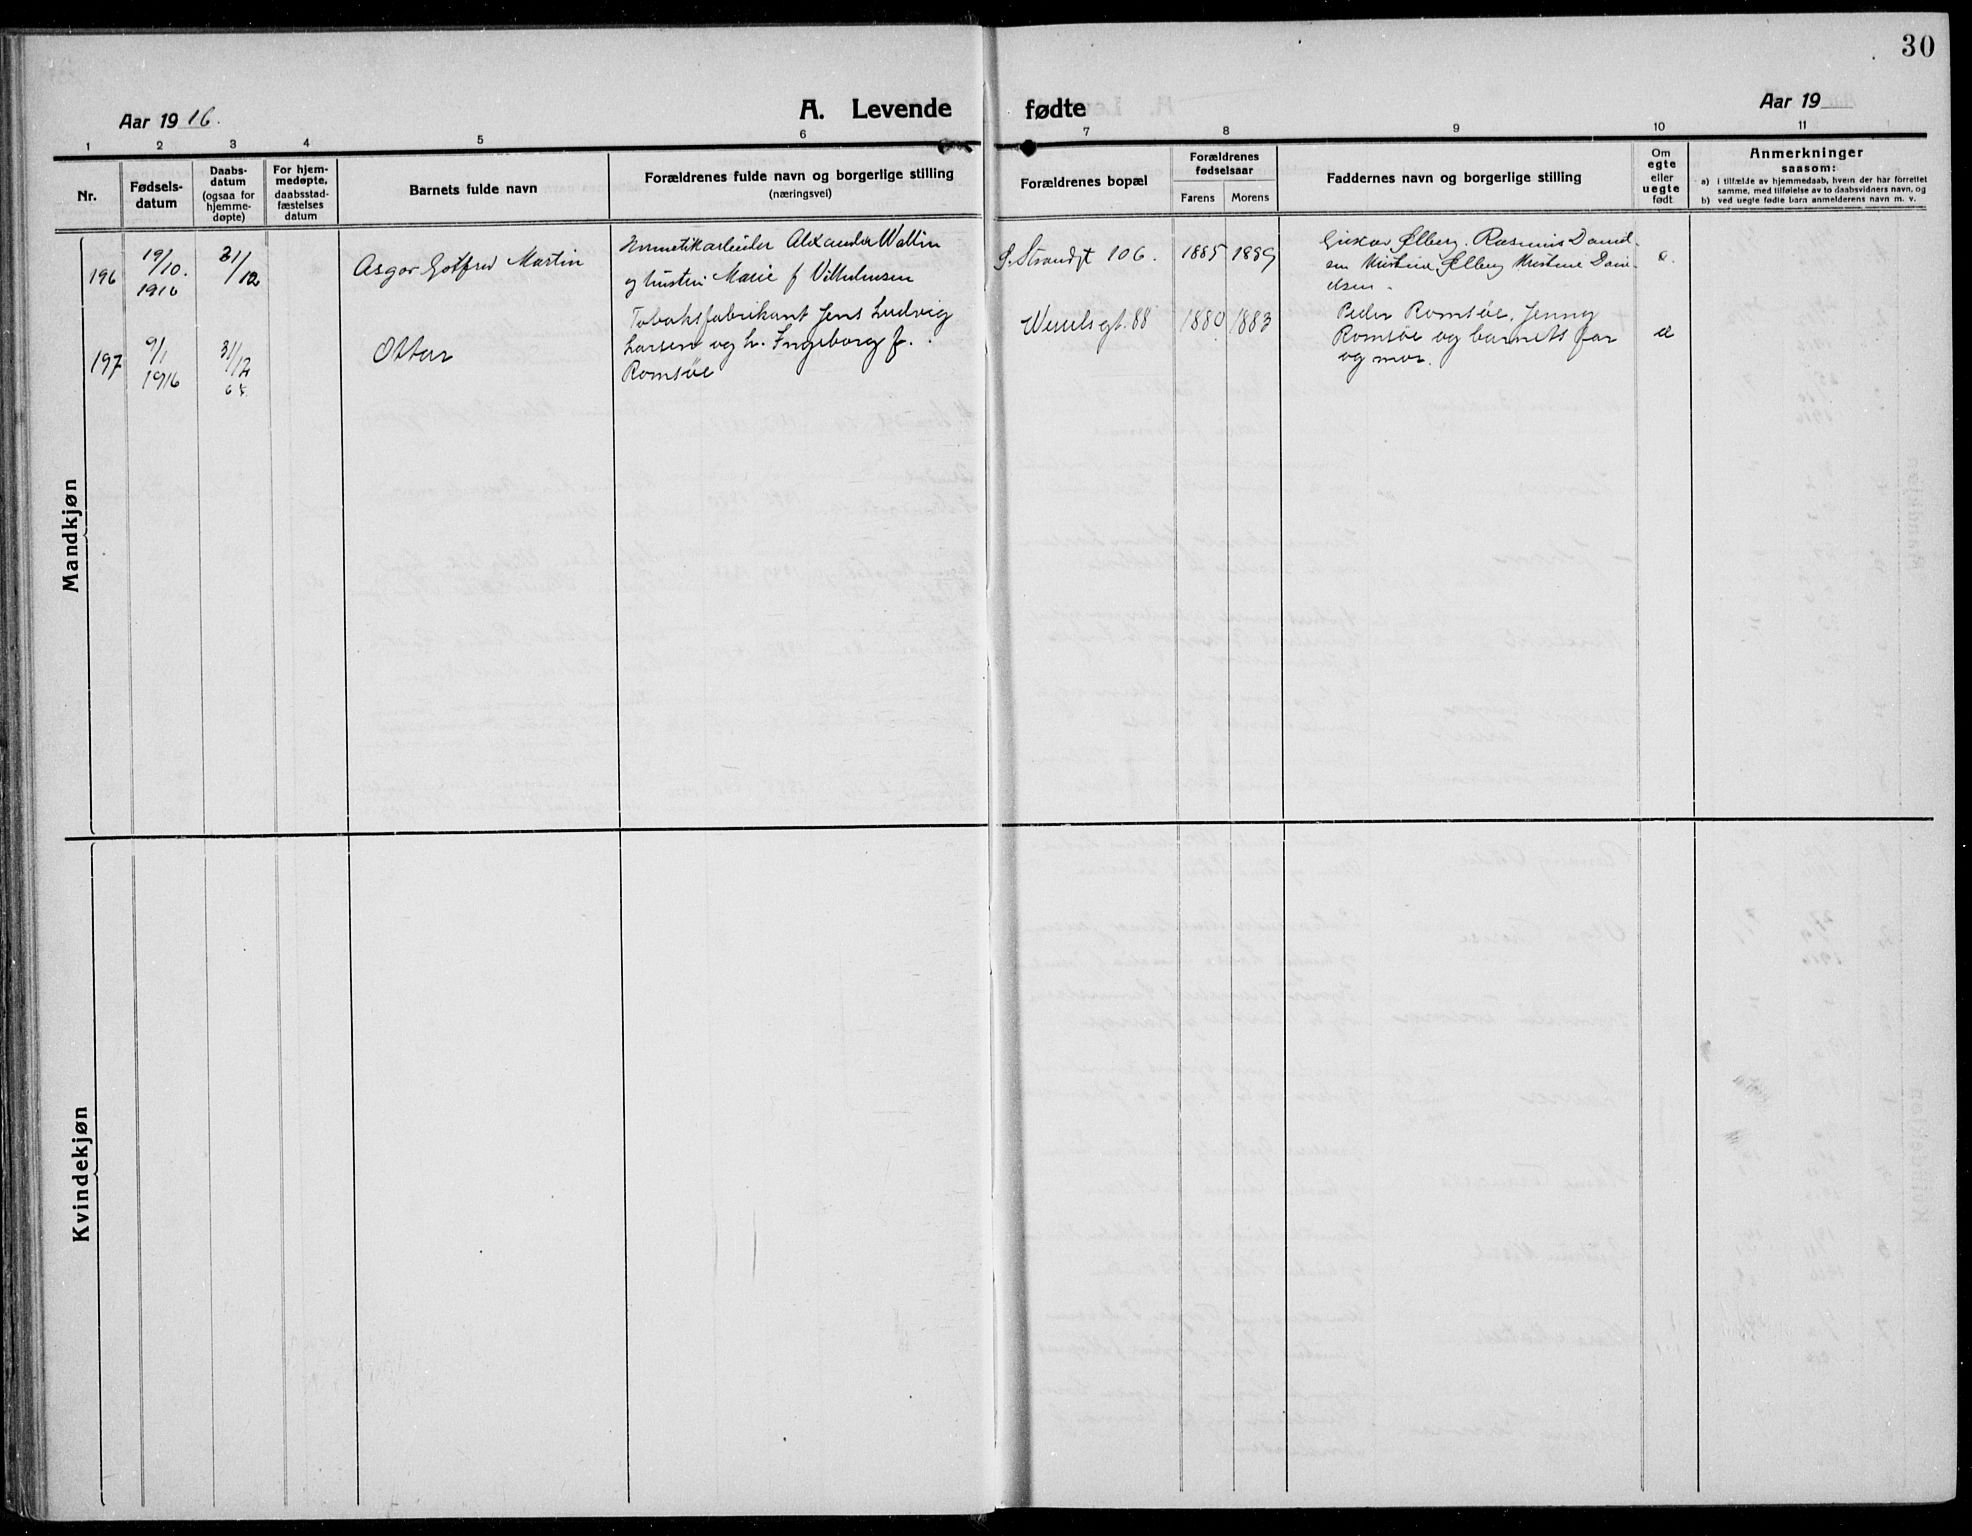 30
Aar 1916.
A. Levende fødte
Aar 19
1 2 3 4 5 6 7 8 9 10 11
Nr.
Fødsels-
datum
Daabs-
datum
(ogsaa for
hjemme-
døpte)
For hjem-
medøpte,
daabsstad-
fæstelses
datum
Barnets fulde navn
Forældrenes fulde navn og borgerlige stilling
(næringsvei)
Forældrenes bopæl
Forældrenes
fødselsaar
Farens Morens
Faddernes navn og borgerlige stilling
Om
egte
eller
uegte
født
Anmerkninger
saasom:
a) i tilfælde av hjemmedaab, hvem der har forrettet
samme, med tilføielse av to daabsvidners navn, og
b) ved uegte fødte barn anmelderens navn m. v.
Mandkjøn
196
19/10.
1916
31/12
Asgar Gotfred Martin
Hermetikarbeider Alexander Wallin
og hustru Marie f Vilhelmsen
S. Strandgt 106.
1885 1889
Gustav Ølberg. Rasmus Daniel-
sen Kristine Ølberg Kristine Dani-
elsen.
e.
197
9/1
1916
31/12
Ottar
Tobaksfabrikant Jens Ludvig
Larsen og h. Ingeborg f.
Romsöe
Wesselsgt. 88
1880 1883
Peder Romsöe, Jenny
Romsöe og barnets far
og mor.
e
Kvindekjøn